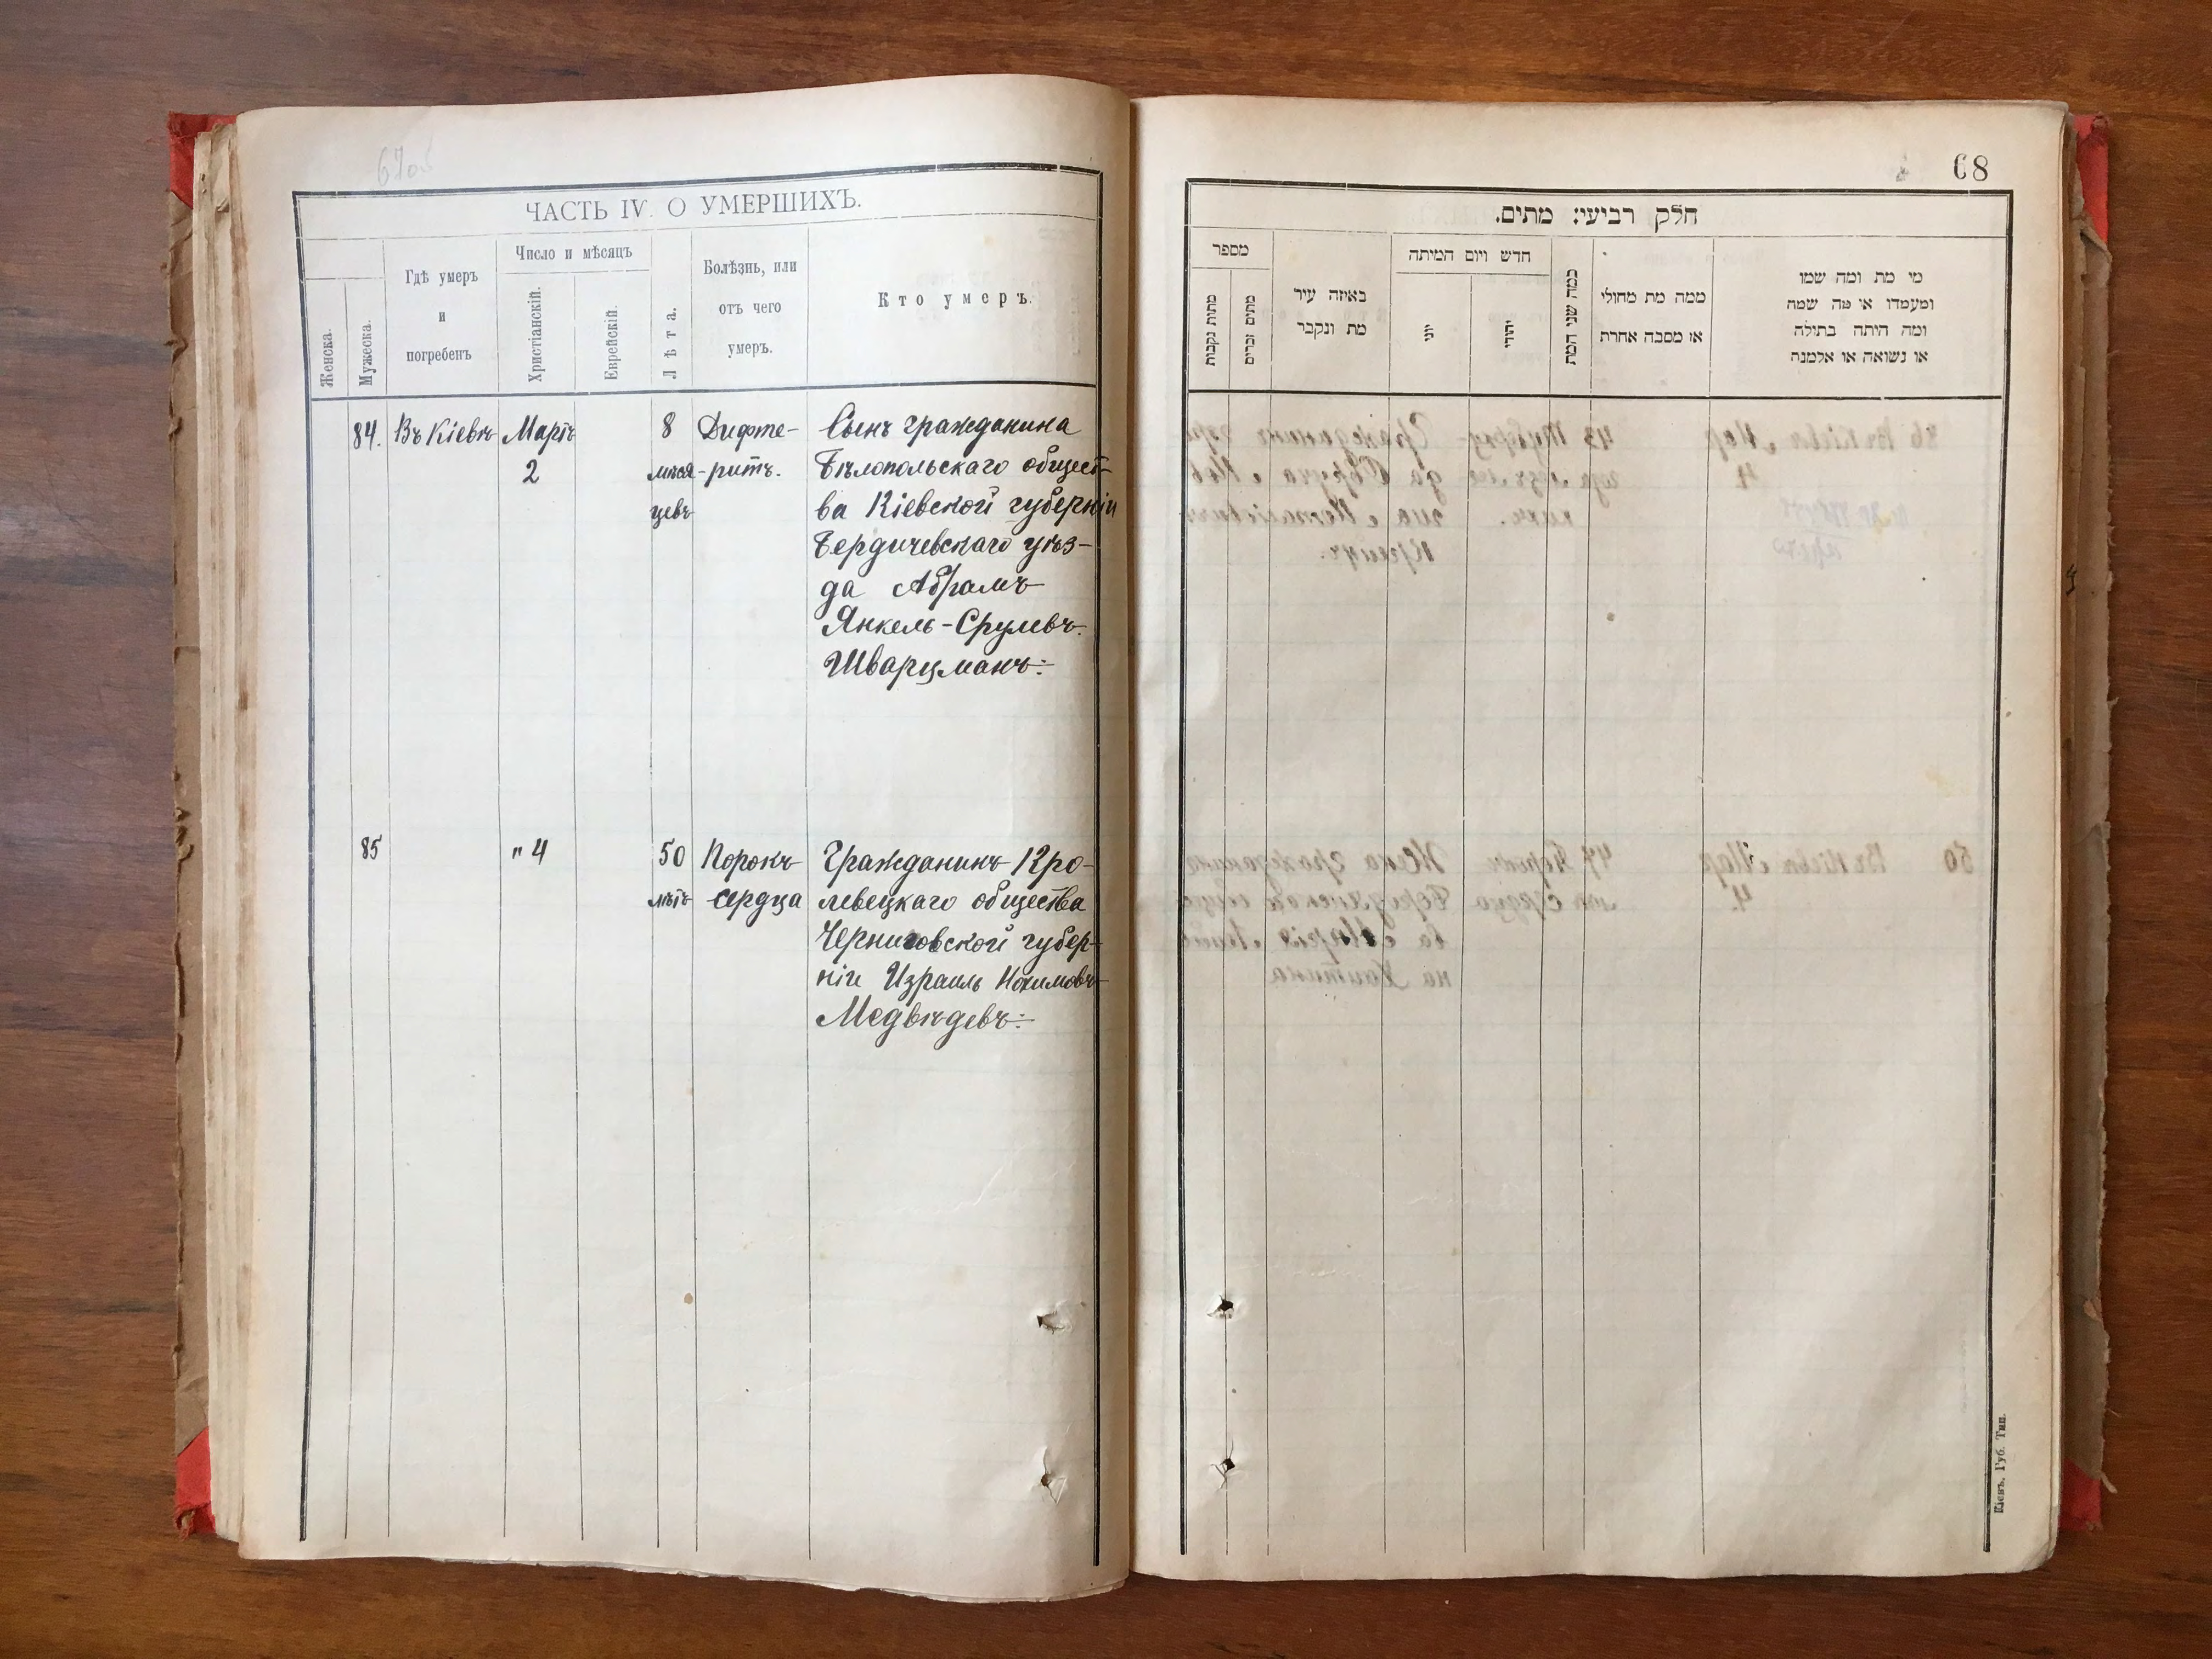 ЧАСТЬ IV. О УМЕРШИХЪ.
Женска.
Мужеска.
Гдѣ умеръ
и
погребенъ
Число и мѣсяцъ
Христіанскій.
Еврейскій.
Лѣта.
Болѣзнь, или
отъ чего
умеръ.
Кто умеръ.
84. Въ Кіевѣ Мартъ 8 Дифте- Сынъ гражданина
2 мѣся- ритъ. Бѣлопольскаго общест-
цевъ ва Кіевской губерніи
Бердичевскаго уѣз-
да Абрамъ
Янкель-Срулевъ
Шварцманъ:
85 " 4 50 Порокъ Гражданинъ Кро-
лѣтъ сердца левецкаго общества
Черниговской губер-
ніи Израиль Нохимовъ
Медвѣдевъ:
68
חלק רביעי: מתים.
מספר
מתות נקבות
מתים זכרים
באיזה עיר
מת ונקבר
חדש ויום המיתה
יוני
יהודי
כמה שני המת
ממה מת מחולי
או מסבה אחרת
מי מת ומה שמו
ומעמדו או מה שמה
ומה היתה בתולה
או נשואה או אלמנה
Кіевъ, Губ. Тип.